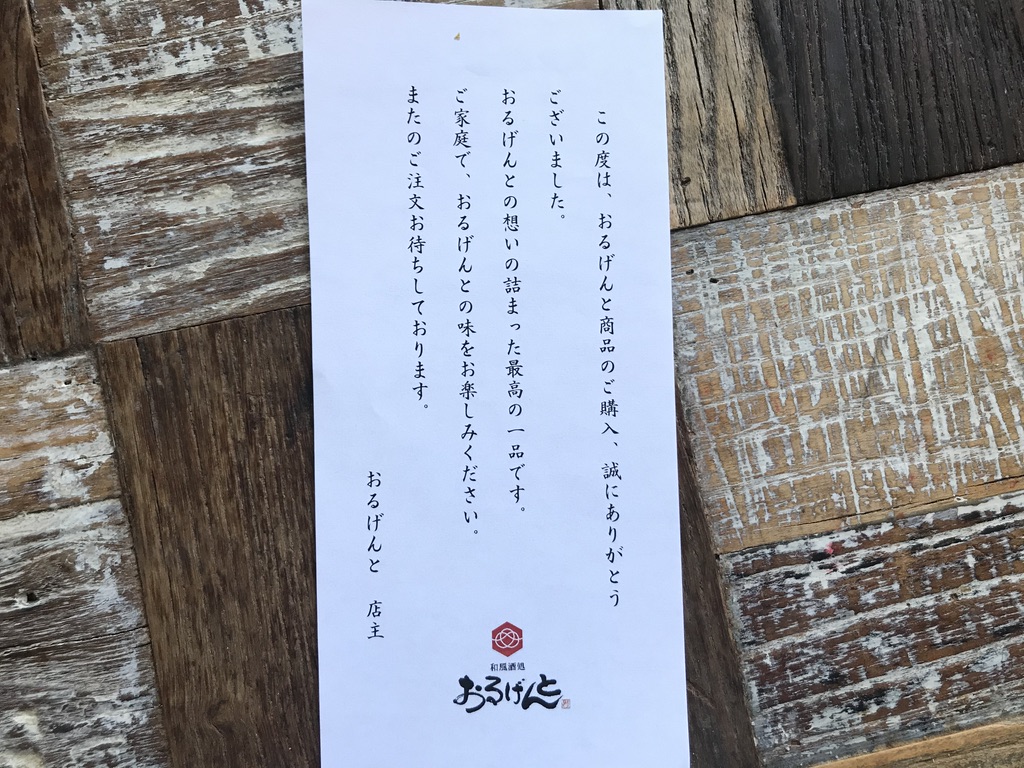 この度は、おるげんと商品のご購入、誠にありがとう
ございました。
おるげんとの想いの詰まった最高の一品です。
ご家庭で、おるげんとの味をお楽しみください。
またのご注文お待ちしております。
おるげんと　店主
和風酒処
おるげんと